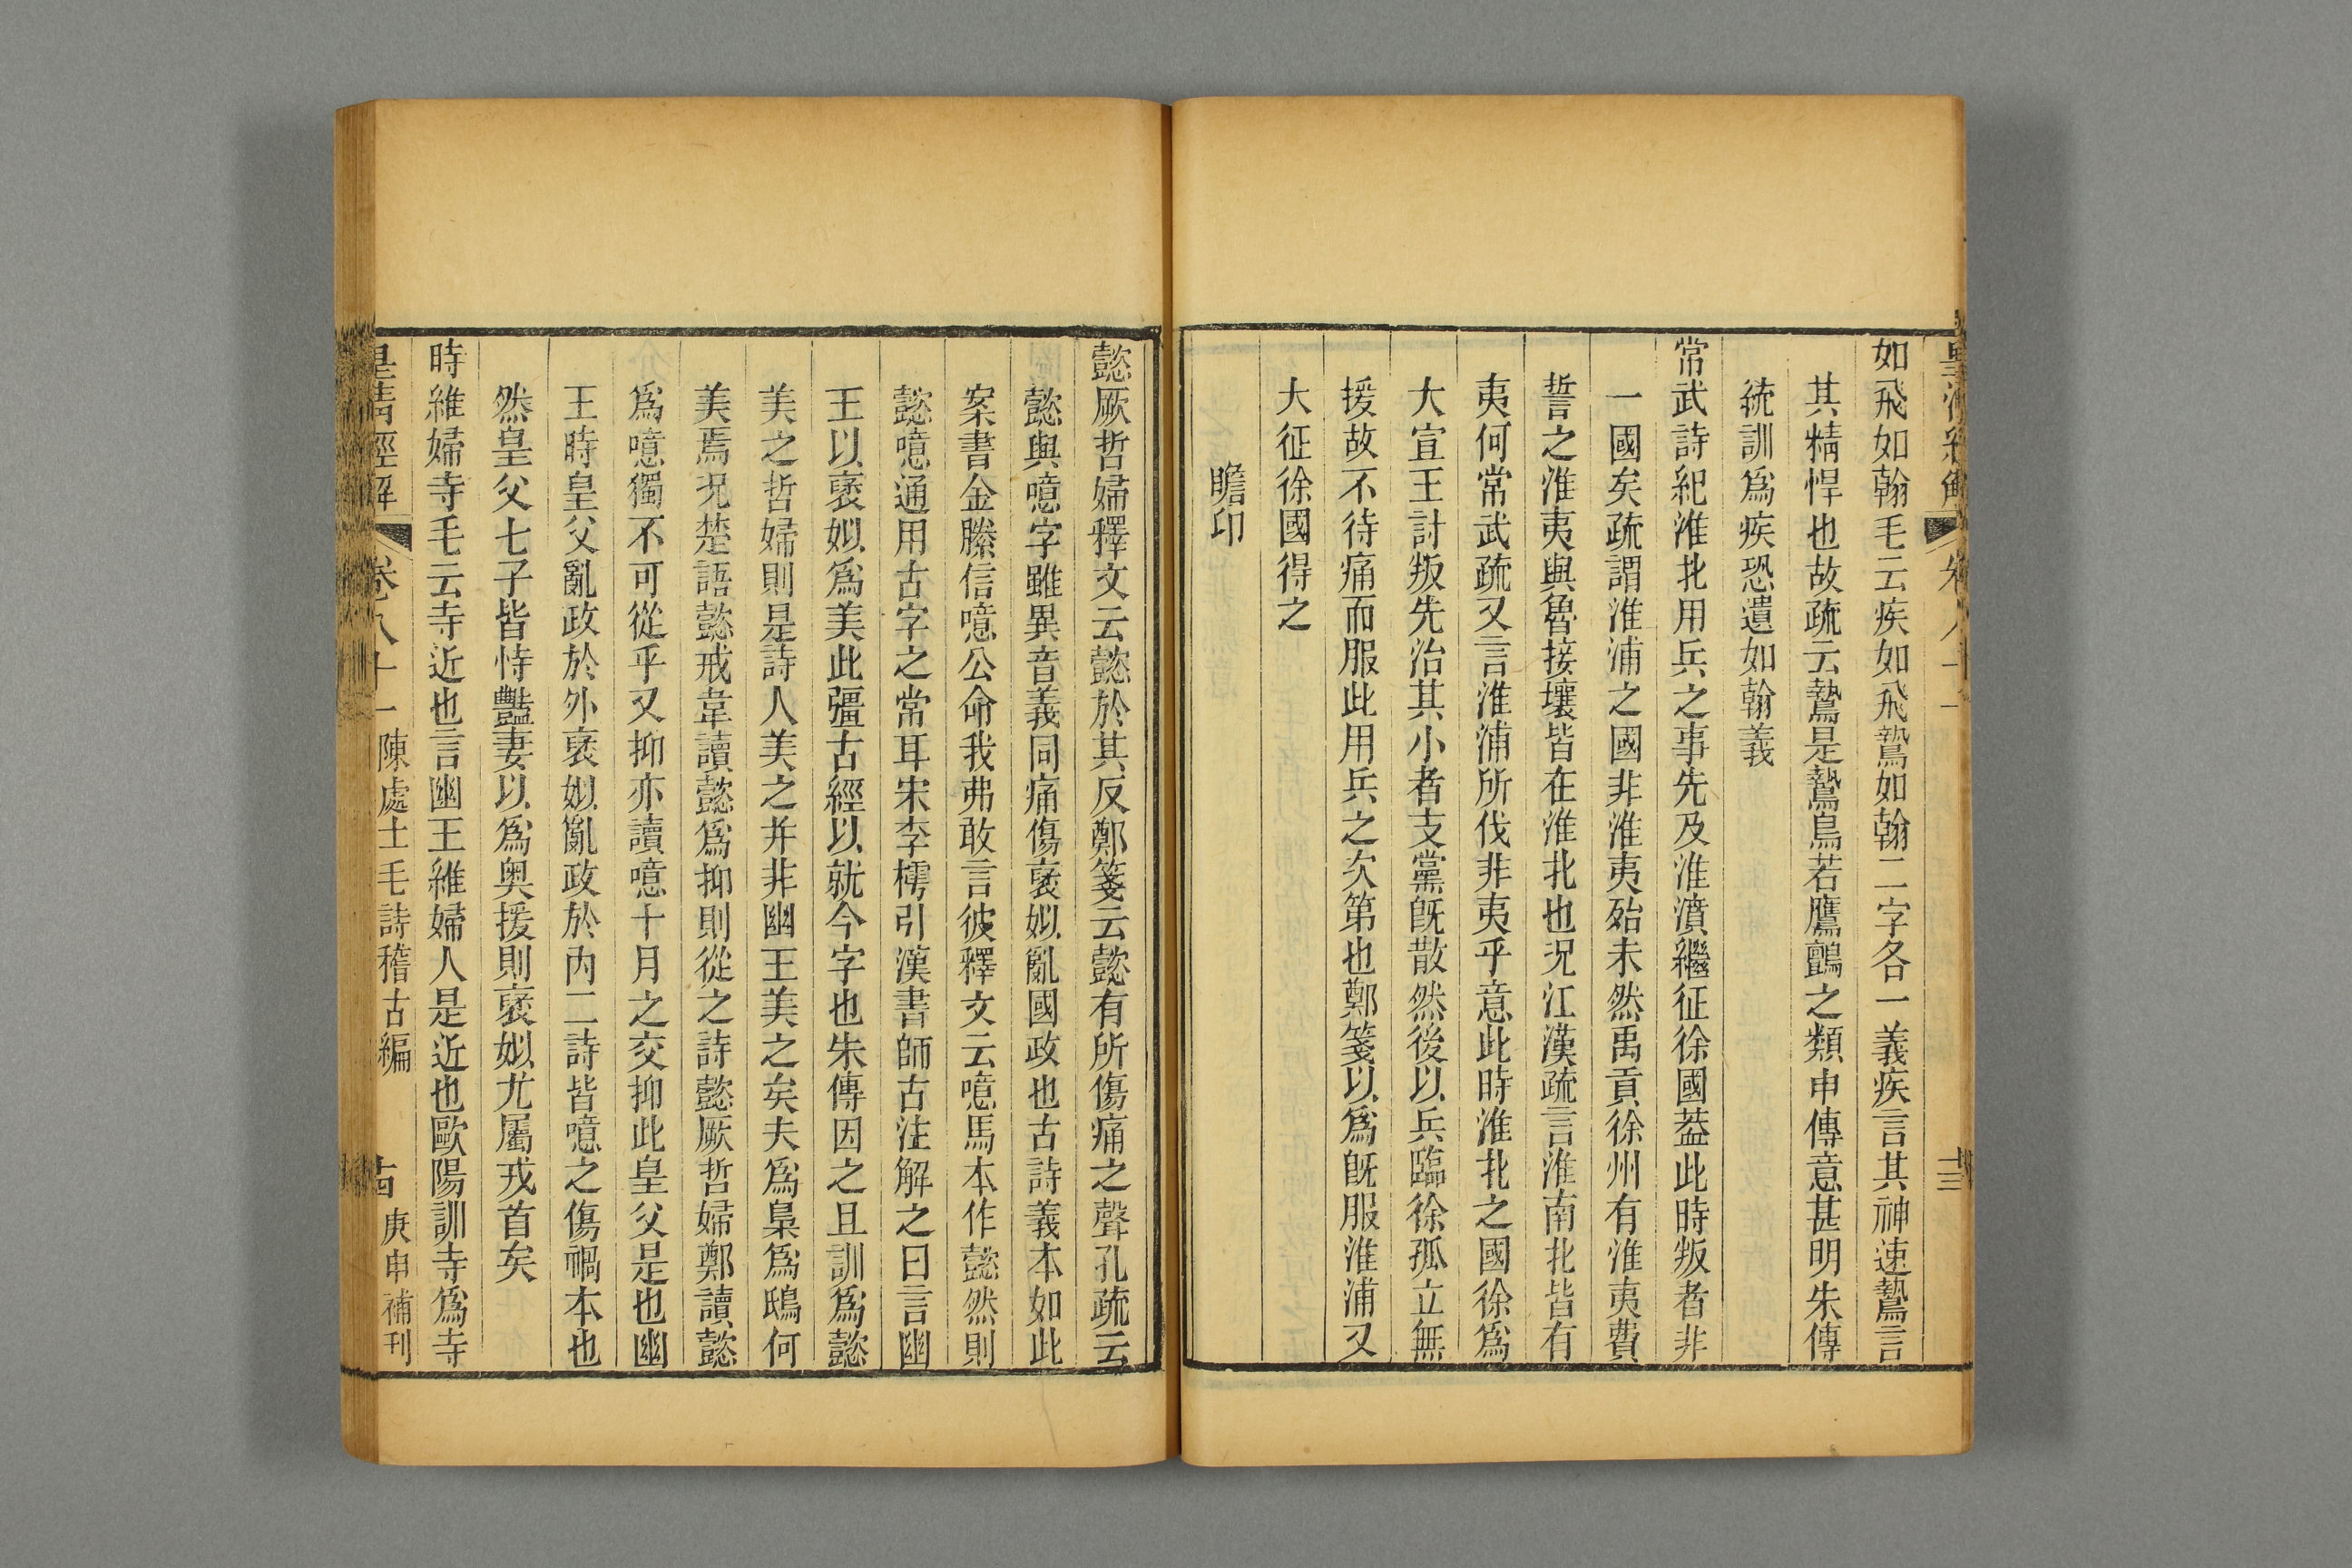 如飛如翰毛云疾如飛鷙如翰二字各一義疾言其神速鷙言
其精悍也故疏云鷙是鷙鳥若鷹鸇之類申傳意甚明朱傳
統訓爲疾恐遺如翰義
常武詩紀淮北用兵之事先及淮濆繼征徐國葢此時叛者非
一國矣疏謂淮浦之國非淮夷殆未然禹貢徐州有淮夷費
誓之淮夷與魯接壤皆在淮北也況江漢疏言淮南北皆有
夷何常武疏又言淮浦所伐非夷乎意此時淮北之國徐爲
大宣王討叛先治其小者支黨旣散然後以兵臨徐孤立無
援故不待痛而服此用兵之次第也鄭箋以爲旣服淮浦又
大征徐國得之
瞻卬
懿厥哲婦釋文云懿於其反鄭箋云懿有所傷痛之聲孔疏云
懿與噫字雖異音義同痛傷襃姒亂國政也古詩義本如此
案書金縢信噫公命我弗敢言彼釋文云噫馬本作懿然則
懿噫通用古字之常耳宋李樗引漢書師古注解之曰言幽
王以襃姒爲美此彊古經以就今字也朱傳因之且訓爲懿
美之哲婦則是詩人美之并非幽王美之矣夫爲梟爲鴟何
美焉況楚語懿戒韋讀懿爲抑則從之詩懿厥哲婦鄭讀懿
爲噫獨不可從乎又抑亦讀噫十月之交抑此皇父是也幽
王時皇父亂政於外襃姒亂政於內二詩皆噫之傷禍本也
然皇父七子皆恃豔妻以爲奥援則襃姒尤屬戎首矣
時維婦寺毛云寺近也言幽王維婦人是近也歐陽訓寺爲寺
皇清經解 卷八十一 陳處士毛詩稽古編 古 庚申補刊